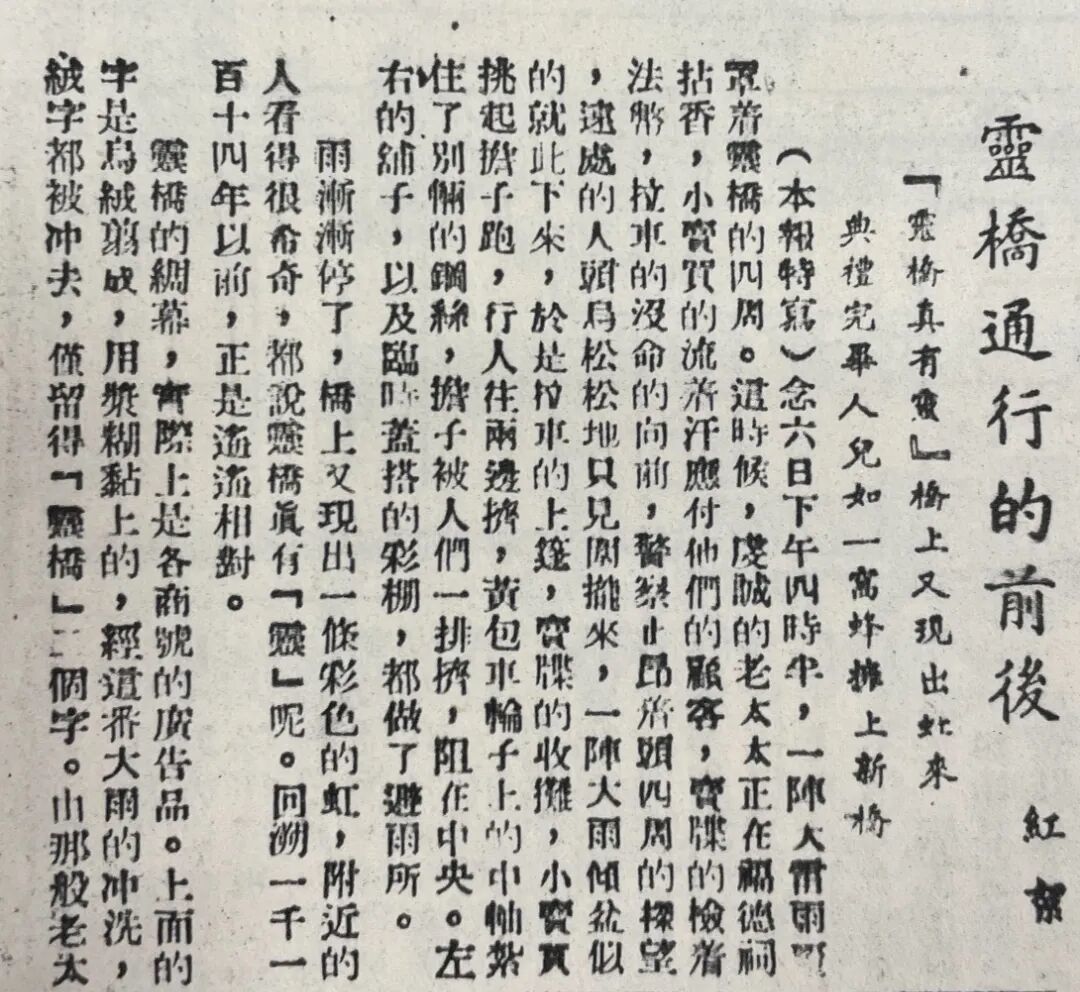 靈橋通行的前後
紅絮
『靈橋真有靈』橋上又現出虹來
典禮完畢人兒如一窩蜂擁上新橋
（本報特寫）念六日下午四時半，一陣大雷雨
罩着靈橋的四周。這時候，虔誠的老太太正在福德祠
拈香，小寶買的流着汗應付他們的顧客，賣牒的檢着
法幣，拉車的沒命的向前，警察止昂着頭四周的探望
，遠處的人頭烏松松地只兒圍攏來，一陣大雨傾盆似
的就此下來，於是拉車的上篷，賣牒的收攤，小賣買
挑起擔子跑，行人往兩邊擠，黃包車輪子上的中軸紮
住了別輛的鋼絲，擔子被人們一排擠，阻在中央。左
右的舖子，以及臨時蓋搭的彩棚，都做了避雨所。
雨漸漸停了，橋上又現出一條彩色的虹，附近的
人看得很希奇，都說靈橋眞有『靈』呢。回溯一千一
百十四年以前，正是遙遙相對。
靈橋的綢幕，實際上是各商號的廣告品。上面的
字是烏絨剪成，用漿糊黏上的，經這番大雨的冲洗，
絨字都被冲去，僅留得『靈橋』二個字。由那般老太